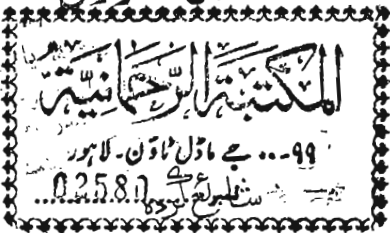 المكتبة الرحمانية
٩٩... جے ماڈل ٹاؤن۔ لاہور
02580